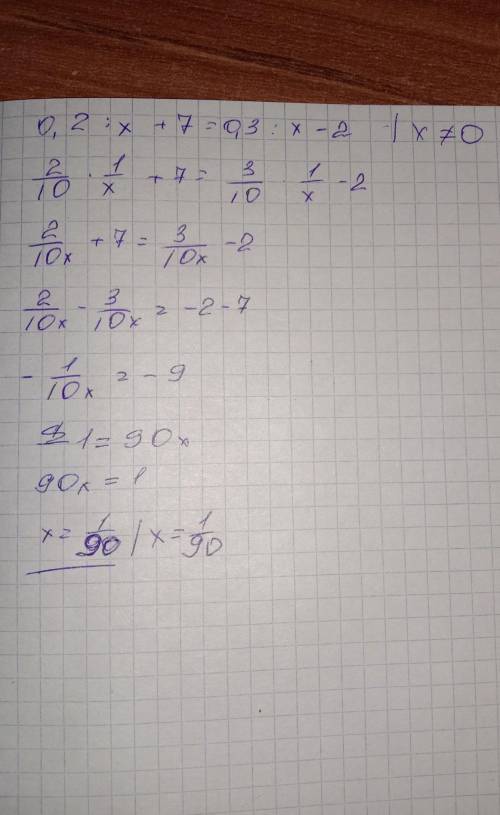 0,2 : x + 7 = 0,3 : x - 2 | x ≠ 0
2/10 · 1/x + 7 = 3/10 · 1/x - 2
2/10x + 7 = 3/10x - 2
2/10x - 3/10x = -2 - 7
- 1/10x = - 9
1 = 90x
90x = 1
x = 1/90 | x = 1/90